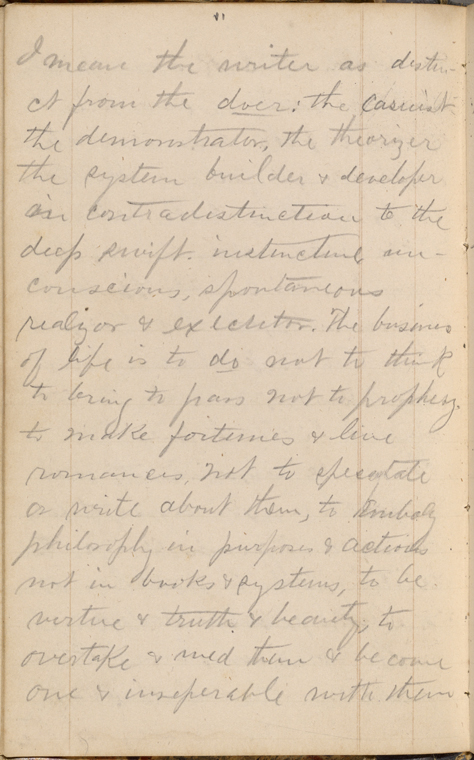 I mean the writer as distin-
ct from the doer: the casuist
the demonstrator, the theorizer
the system builder & developer
in contradistinction to the
deep swift instinctive un-
conscious, spontaneous
realizor & executor. The business
of life is to do not to think
to bring to pass not to prophesy.
to make fortunes & live
romances, not to speculate
or write about them, to embody
philosophy in purposes & actions
not in books & systems, to be
virtue & truth & beauty, to
overtake & wed them & become
one & inseperable with them